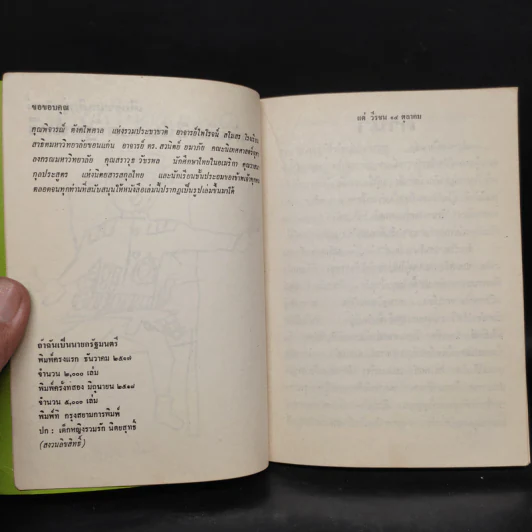 ขอขอบคุณ
คุณพิจารณ์ ตังคไพศาล แห่งรวมประชาชาติ อาจารย์ไพโรจน์ สโมสร โรงเรียน
สาธิตมหาวิทยาลัยขอนแก่น อาจารย์ ดร. สวนิตย์ ยมาภัย คณะนิเทศศาสตร์จุฬา
ลงกรณมหาวิทยาลัย คุณสราวุธ วัชรพล นักศึกษาไทยในอเมริกา
กุลประสูตร แห่งนิตยสารสกุลไทย และนักเรียนชั้นประถมของข้าพเจ้าทุกคน
ตลอดจนทุกท่านที่สนับสนุนให้หนังสือเล่มนี้ปรากฏเป็นรูปเล่มขึ้นมาได้
ถ้าฉันเป็นนายกรัฐมนตรี
พิมพ์ครั้งแรก ธันวาคม ๒๕๑๗
จำนวน ๒,๐๐๐ เล่ม
พิมพ์ครั้งที่สอง มิถุนายน ๒๕๑๘
จำนวน ๕,๐๐๐ เล่ม
พิมพ์ที่ กรุงสยามการพิมพ์
ปก : เด็กหญิงรวมรัก นิตยสุทธิ์
(สงวนลิขสิทธิ์)
แด่ วีรชน ๑๔ ตุลาคม